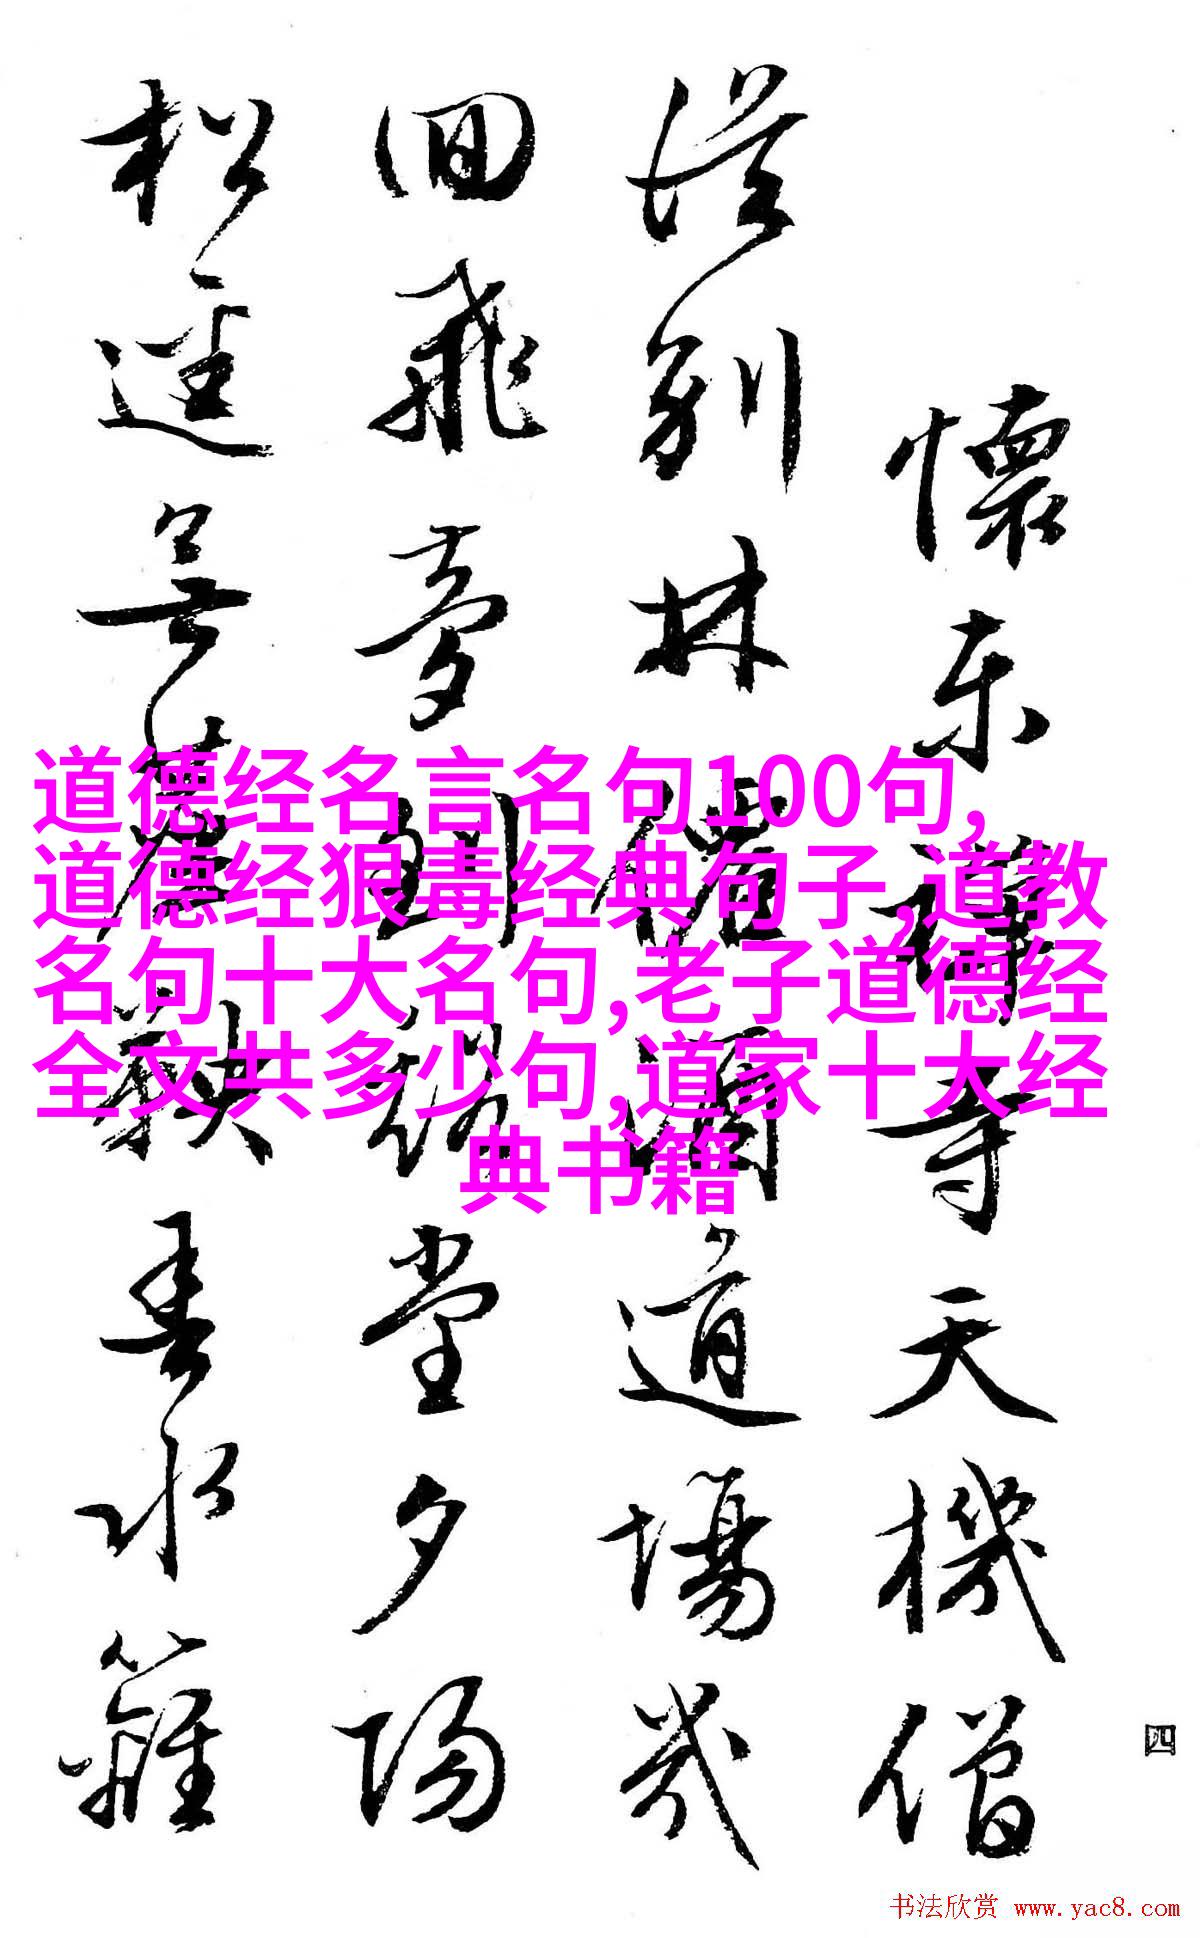 懷东禪寺天機僧
從别林道場幾
囬飛夢到堂夕陽
松逕無春水籬
四
道德经名言名句100句,
道德经狠毒经典句子,道教
名句十大名句,老子道德经
全文共多少句,道家十大经
典书籍
书法欣赏 www.yac8.com